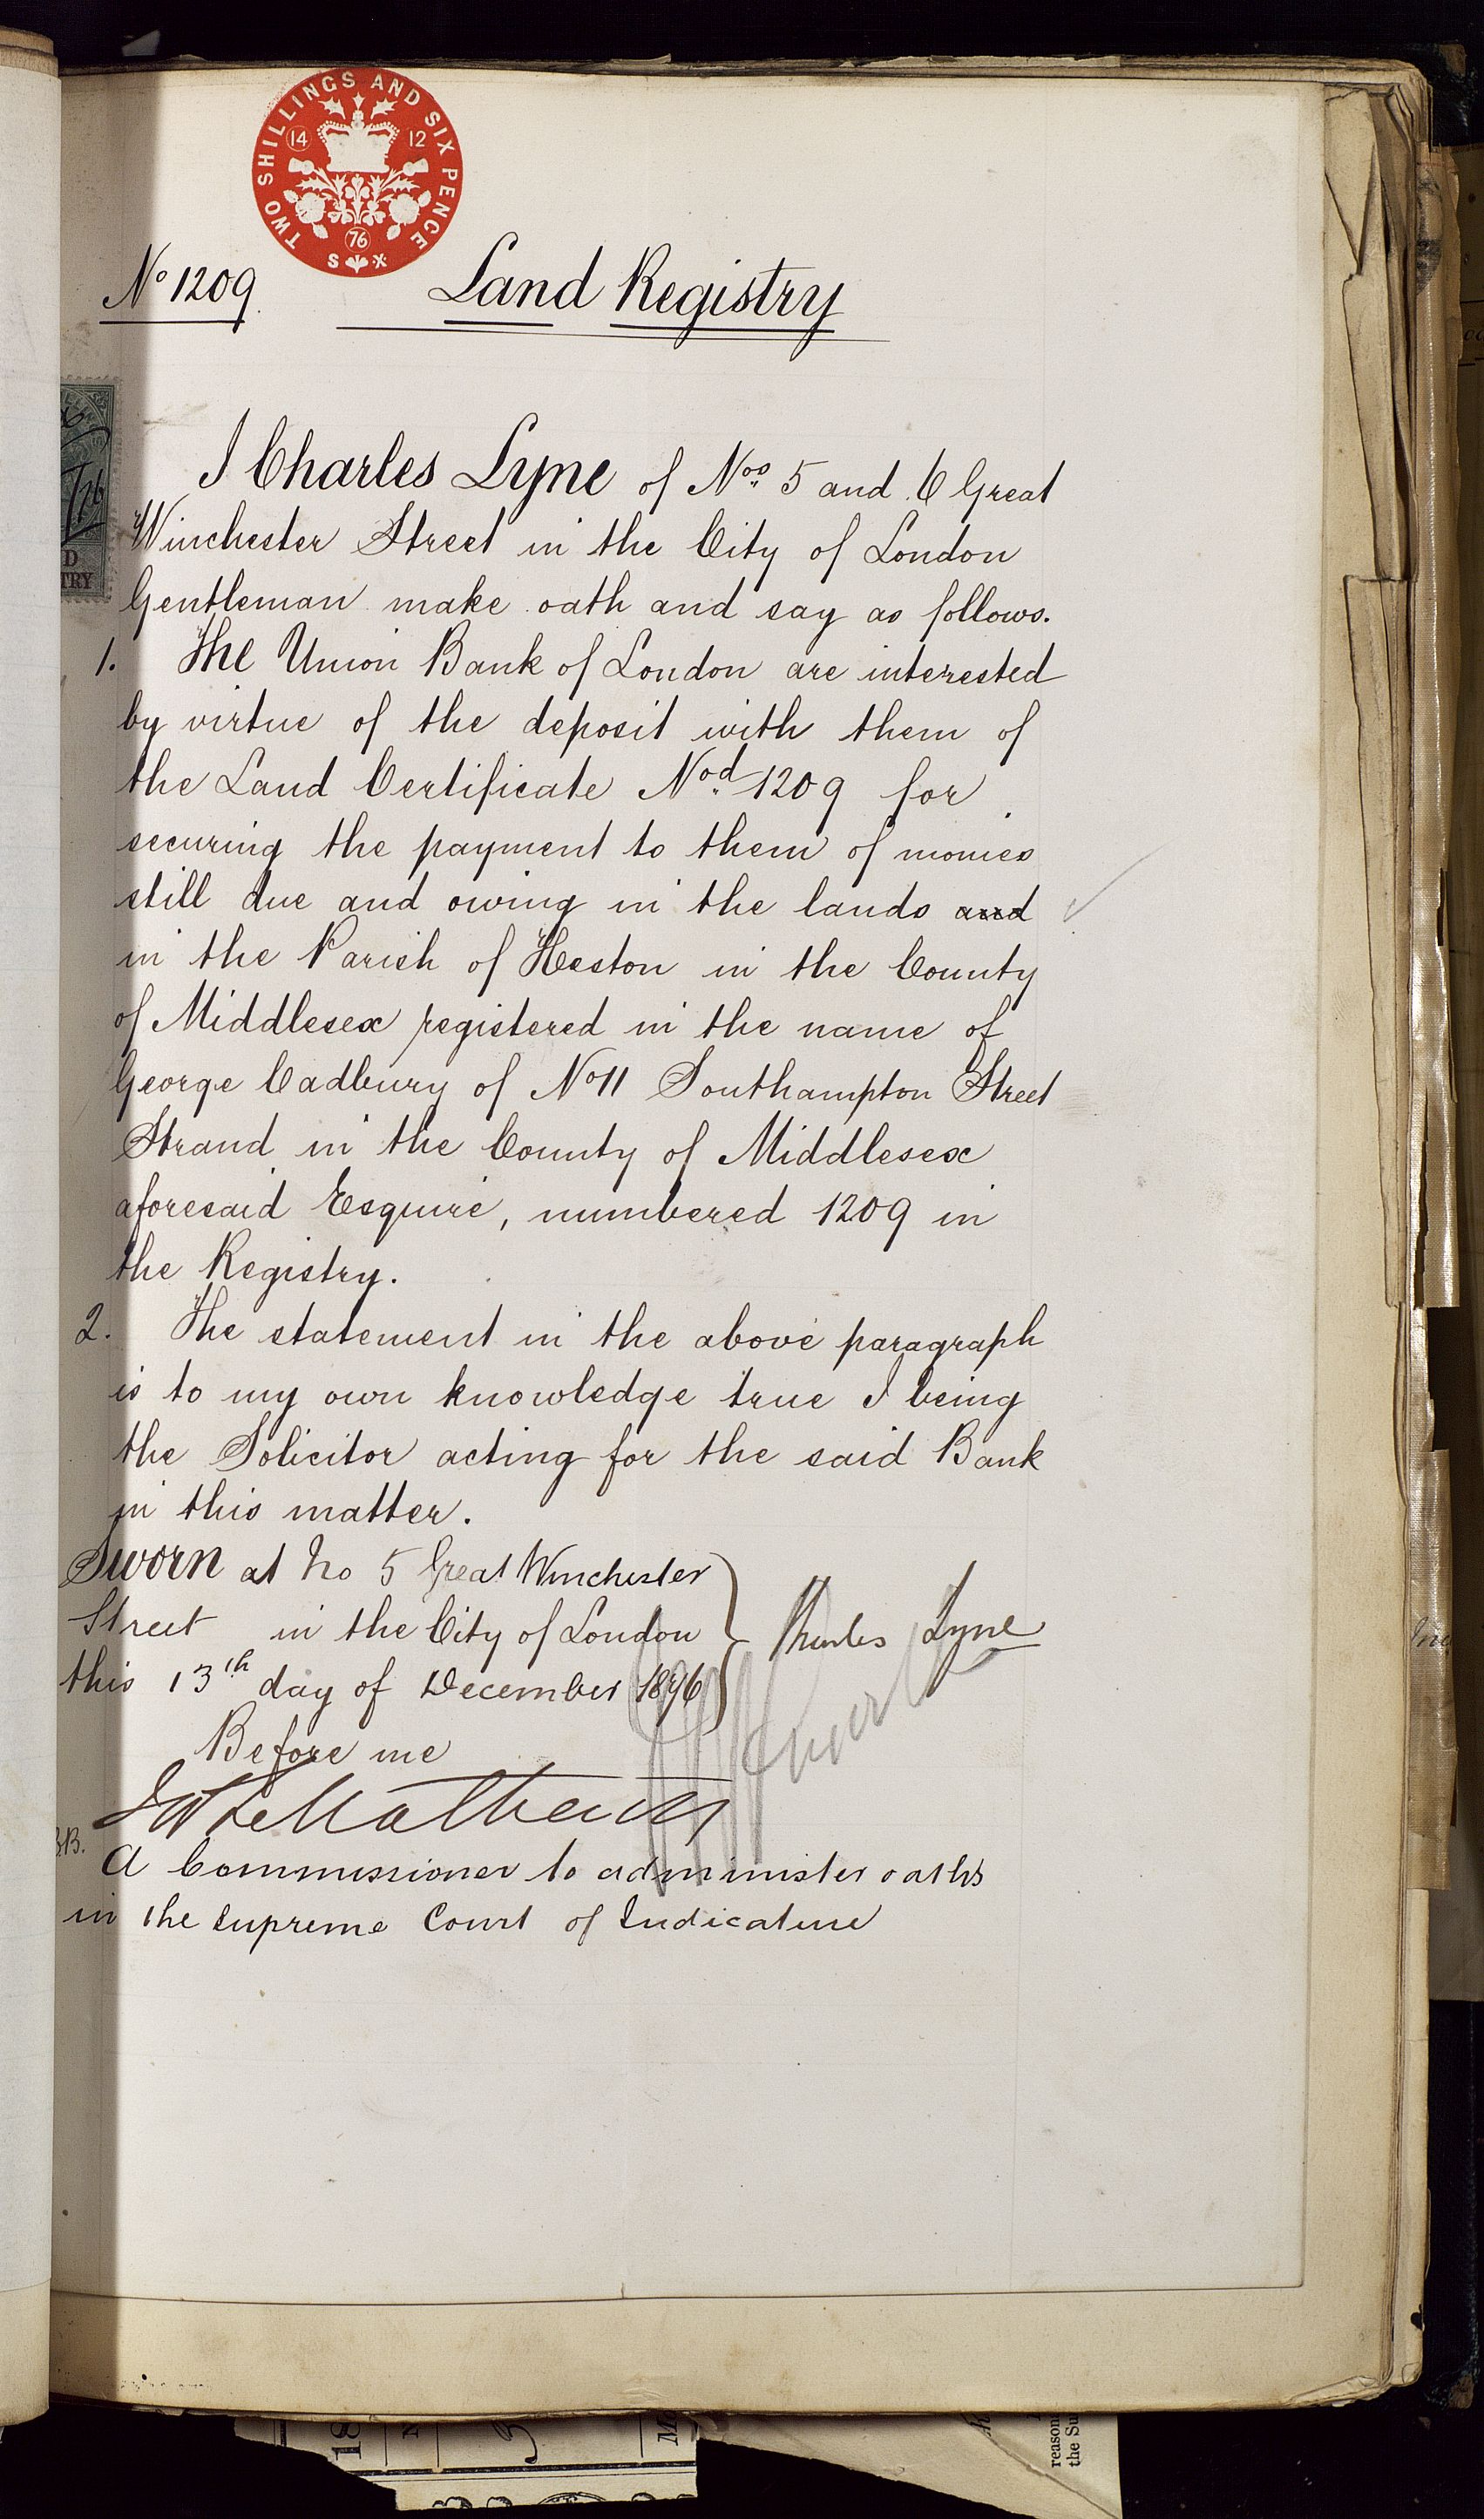 TWO SHILLINGS AND SIX PENCE
14 12
76
S
No 1209.
Land Registry
I Charles Lyne of Nos. 5 and 6 Great
Winchester Street in the City of London
Gentleman make oath and say as follows.
1. The Union Bank of London are interested
by virtue of the deposit with them of
the Land Certificate Nod. 1209 for
securing the payment to them of monies
still due and owing in the lands and
in the Parish of Heston in the County
of Middlesex registered in the name of
George Cadbury of No 11 Southampton Street
Strand in the County of Middlesex
aforesaid Esquire, numbered 1209 in
the Registry.
2. The statement in the above paragraph
is to my own knowledge true I being
the Solicitor acting for the said Bank
in this matter.
Sworn at No 5 Great Winchester
Street in the City of London
this 13th day of December 1876
Charles Lyne
Before me
A Commissioner to administer oaths
in the Supreme Court of Judicature
D
TRY
18
reason
the Su